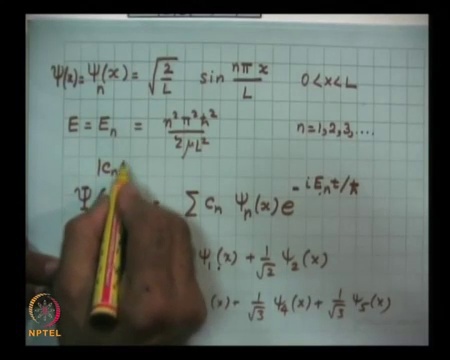 ψ(x) = ψ_n(x) = √(2/L) sin nπx/L 0<x<L
E = E_n = n²π²ℏ²/2μL² n=1,2,3,...
|c_n
Ψ = Σ c_n ψ_n(x) e^{-iE_n t/ℏ}
ψ₁(x) + 1/√2 ψ₂(x)
(x) + 1/√3 ψ₄(x) + 1/√3 ψ₅(x)
NPTEL